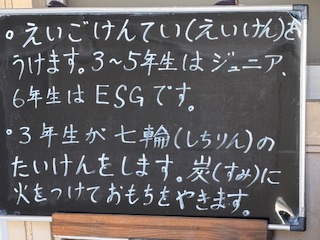 • えいごけんてい(えいけん)を
うけます。3～5年生はジュニア、
6年生はESGです。
• 3年生が七輪(しちりん)の
たいけんをします。炭(すみ)に
火をつけておもちをやきます。